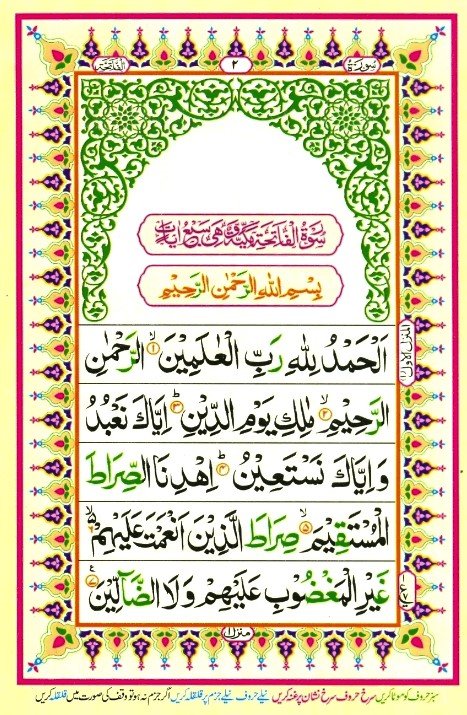 سورة ٢ الفاتحة
سُوْرَةُ الْفَاتِحَةِ مَكِّيَّةٌ وَّهِيَ سَبْعُ اٰيَاتٍ
بِسْمِ اللّٰهِ الرَّحْمٰنِ الرَّحِيْمِ
اَلْحَمْدُ لِلّٰهِ رَبِّ الْعٰلَمِيْنَ ۙ﴿۱﴾ الرَّحْمٰنِ
الرَّحِيْمِ ۙ﴿۲﴾ مٰلِكِ يَوْمِ الدِّيْنِ ؕ﴿۳﴾ اِيَّاكَ نَعْبُدُ
وَاِيَّاكَ نَسْتَعِيْنُ ؕ﴿۴﴾ اِهْدِنَا الصِّرَاطَ
الْمُسْتَقِيْمَ ۙ﴿۵﴾ صِرَاطَ الَّذِيْنَ اَنْعَمْتَ عَلَيْهِمْ ۙ﴿۶﴾
غَيْرِ الْمَغْضُوْبِ عَلَيْهِمْ وَلَا الضَّآلِّيْنَ ﴿۷﴾
المنزل الاول
منزل ۱
سبز حروف کو موٹا کریں سرخ حروف سرخ نشان پر غنہ کریں نیلے حروف نیلے جزم پر قلقلہ کریں اگر جزم نہ ہو تو وقف کی صورت میں قلقلہ کریں